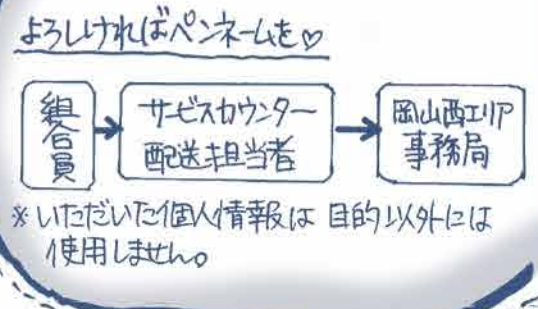 よろしければペンネームを♡
組合員 → サービスカウンター 配送担当者 → 岡山西エリア 事務局
※いただいた個人情報は 目的以外には
使用しません。